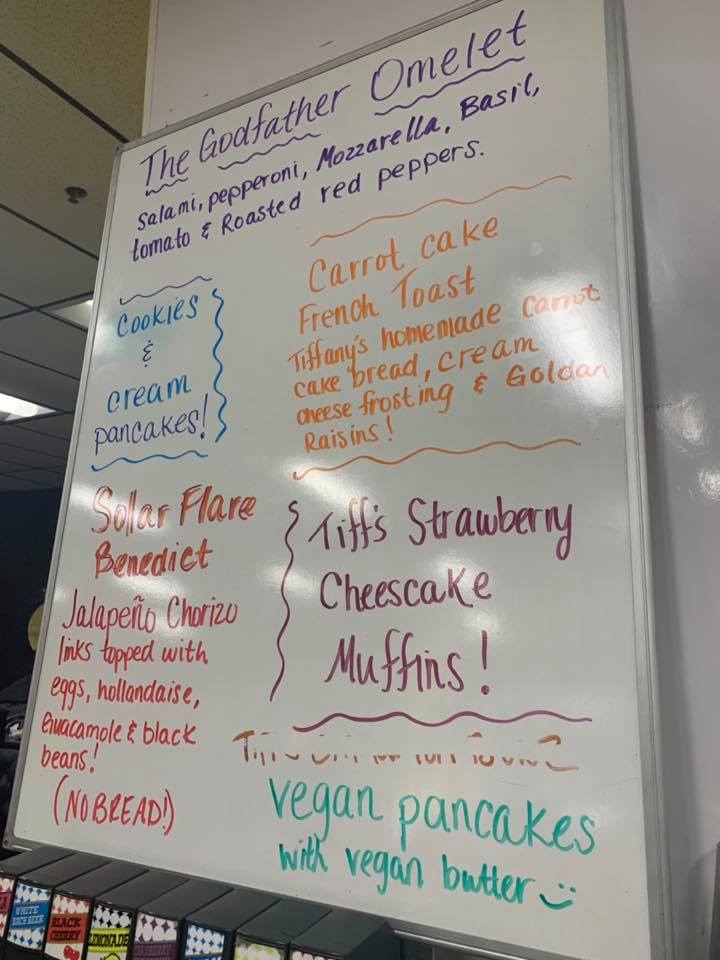 The Godfather Omelet
salami, pepperoni, Mozzarella, Basil,
tomato & Roasted red peppers.
Carrot cake
French Toast
Tiffany's homemade carrot
cake bread, cream
cheese frosting & Goldan
Raisins!
cookies
&
cream
pancakes!
Sollar Flare
Benedict
Jalapeño Chorizo
links topped with
eggs, hollandaise,
Guacamole & black
beans!
(NO BREAD!)
Tiff's Strawberry
Cheescake
Muffins!
vegan pancakes
with vegan butter
WHITE
BIRCH BEER
BLACK
CHERRY
LEMONADE